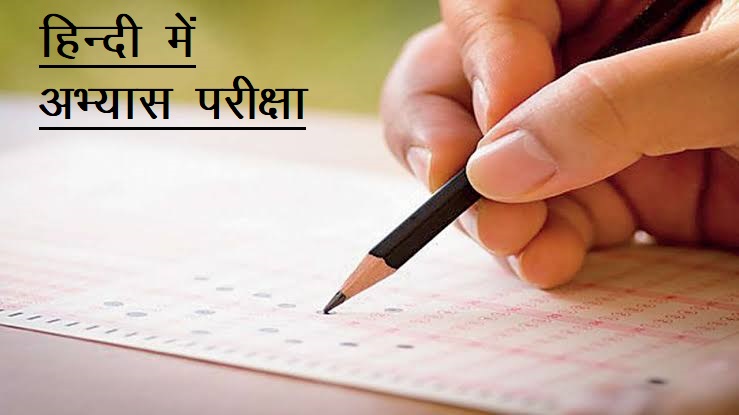 हिन्दी में
अभ्यास परीक्षा